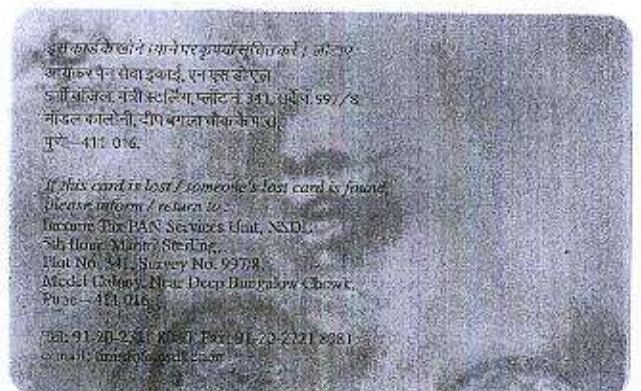 इस कार्ड के खोने / पाने पर कृपया सूचित करें / लौटाएं
आयकर पैन सेवा इकाई, एन एस डी एल
मंजिल, मंत्री स्टर्लिंग, प्लॉट नं. 341, सर्वे नं. 997/8
मॉडल कालोनी, दीप बंगला चौक के पास,
पुणे – 411 016.
If this card is lost / someone's lost card is found,
please inform / return to :
Income Tax PAN Services Unit, NSDL
5th floor, Mantri Sterling,
Plot No. 341, Survey No. 997/8,
Model Colony, Near Deep Bungalow Chowk,
Pune – 411 016.
Tel: 91-20-2721 8080, Fax: 91-20-2721 8081